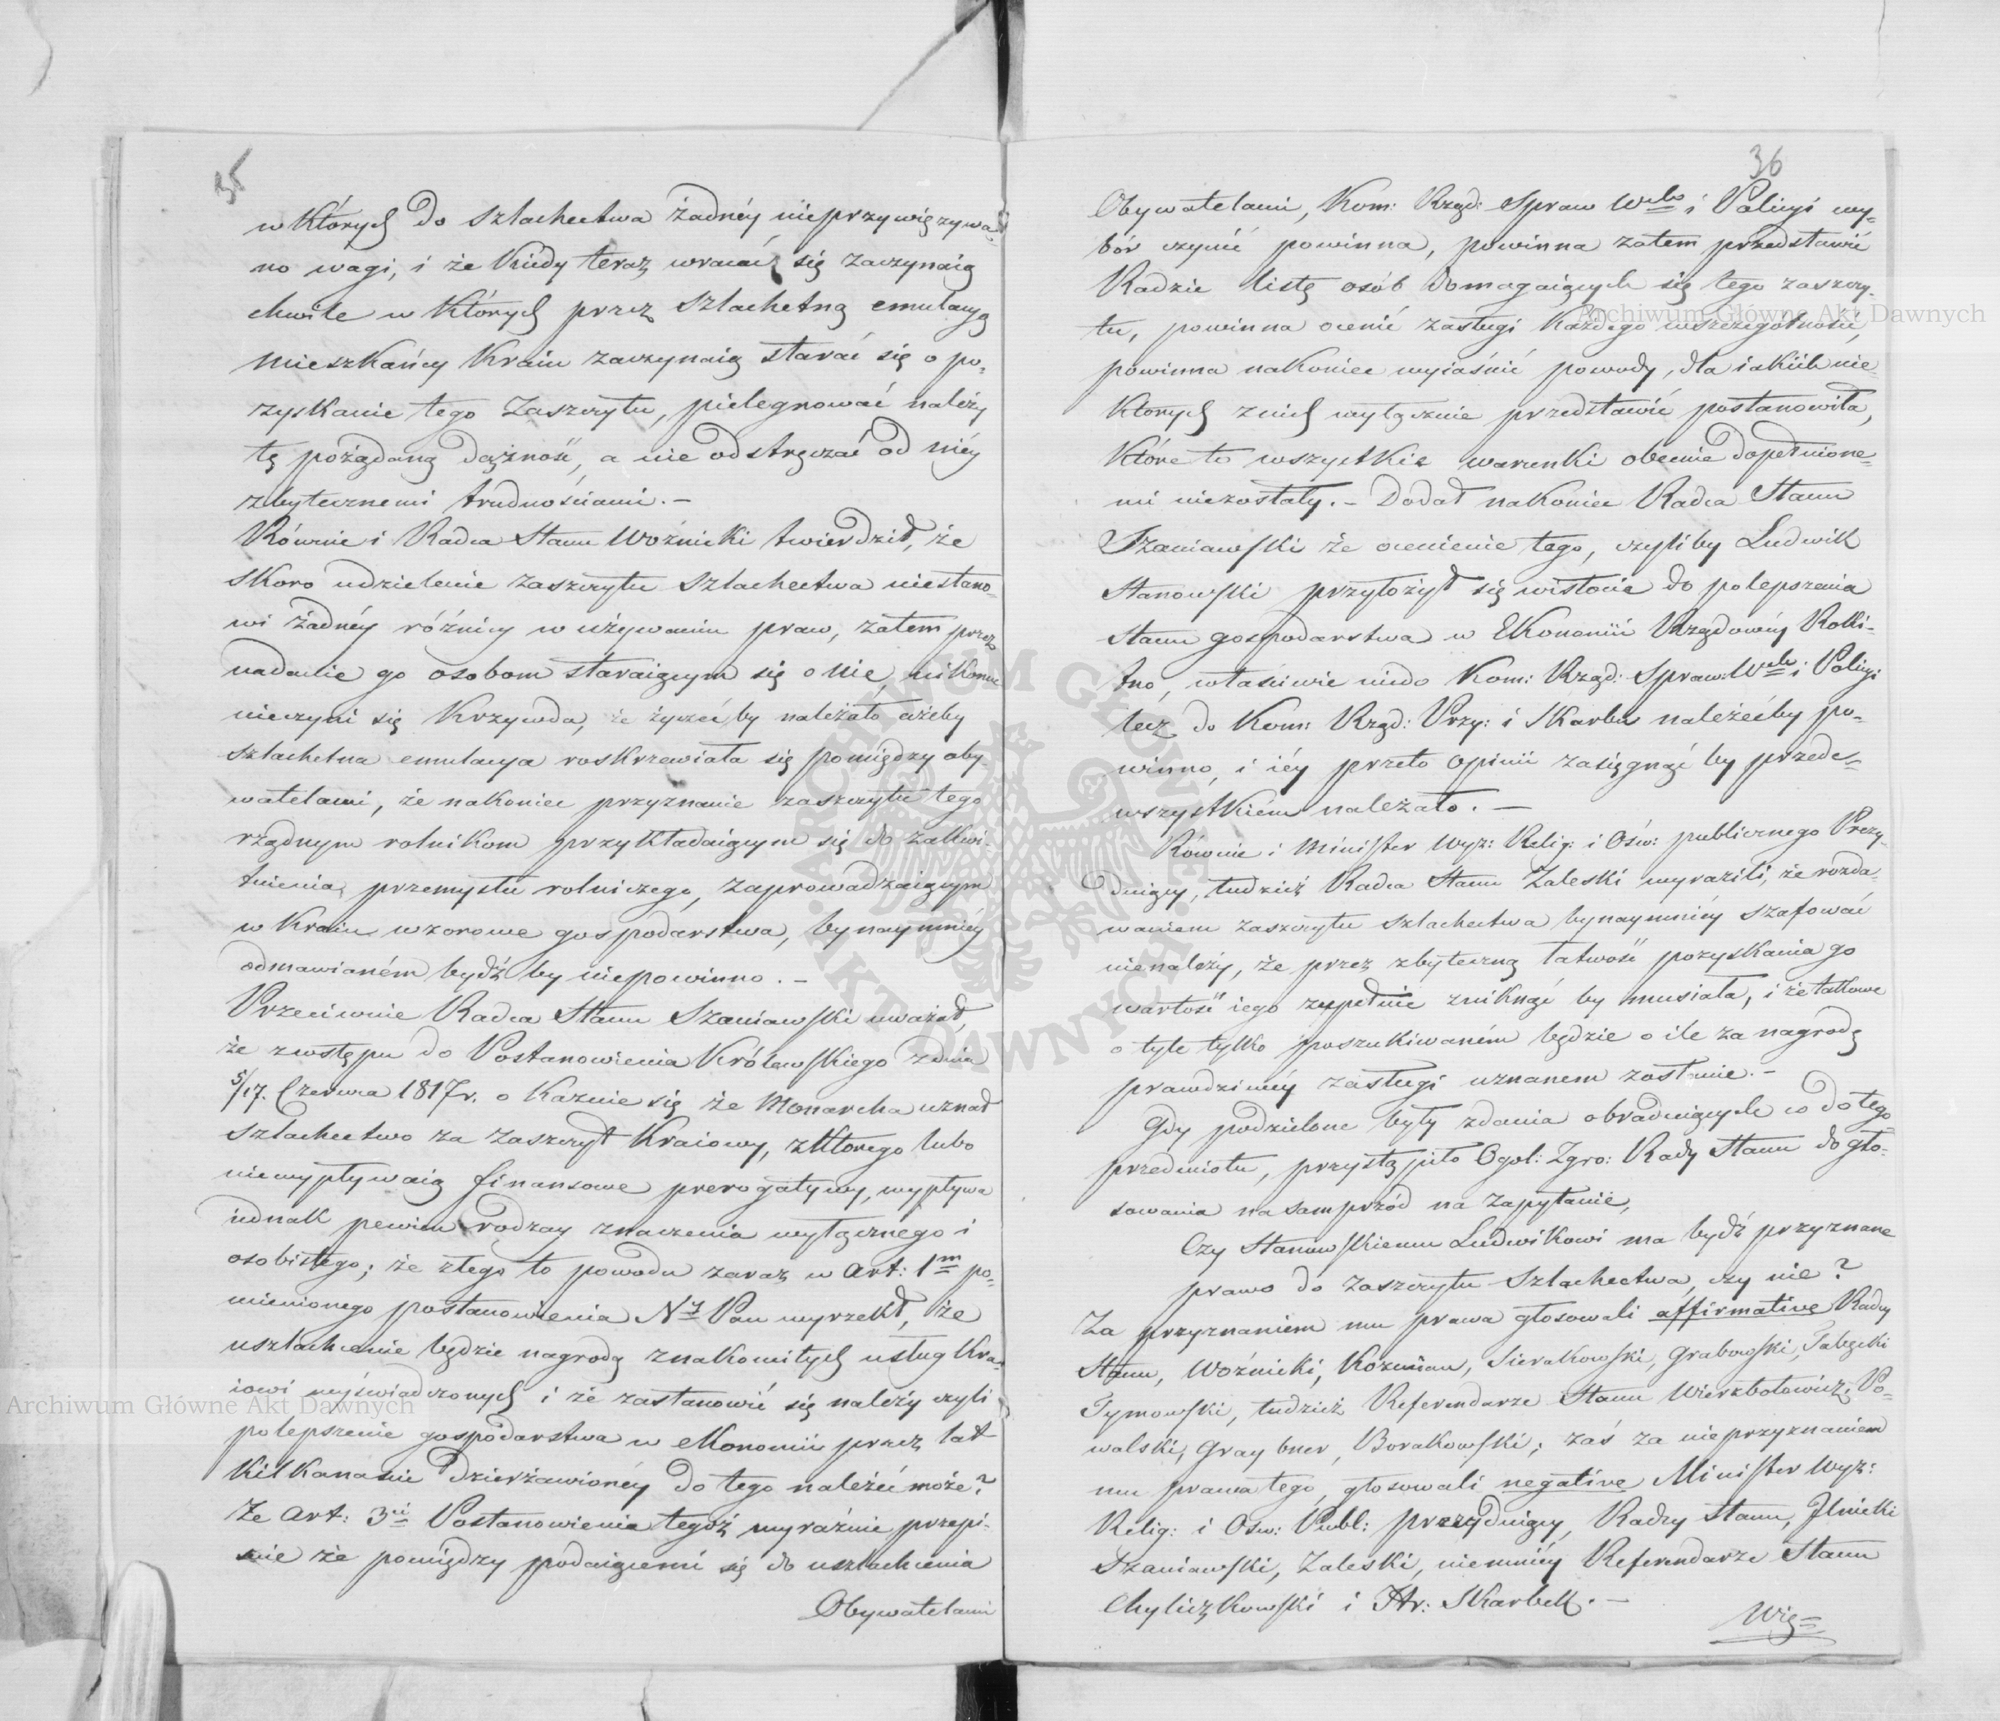 35
w których do szlachectwa żadnéy nieprzywięzywa-
no wagi, i że kiedy teraz wracać się zaczynaią
chwile w których przez szlachetną emulacyą
mieszkańcy Kraiu zaczynaią starać się o po-
zyskanie tego Zaszczytu, pielęgnować należy
tę pożądaną dążność, a nie odstręczać od niéy
zbytecznemi trudnościami. –
Równie i Radca Stanu Woźnicki twierdził, że
skoro udzielenie zaszczytu szlachectwa niestano-
wi żadnéy różnicy w używaniu praw, zatem przez
nadanie go osobom staraiącym się o nie, nikomu
nieczyni się krzywda, że życzéć by należało ażeby
szlachetna emulacya roskrzewiała się pomiędzy oby-
watelami, że nakoniec przyznanie zaszczytu tego
rządnym rolnikom przykładaiącym się do zakwi-
tnienia przemysłu rolniczego, zaprowadzaiącym
w Kraiu wzorowe gospodarstwa, bynaymniéy
odmawianém bydź by niepowinno. –
Przeciwnie Radca Stanu Szaniawski uważał,
że zwstępu do Postanowienia Królewskiego z dnia
5/17. Czerwca 1817 r. okazuie się że Monarcha uznał
szlachectwo za zaszczyt Kraiowy, z którego lubo
niewypływaią finansowe prerogatywy, wypływa
iednak pewien rodzay znaczenia wyłącznego i
osobistego; że ztego to powodu zaraz w Art: 1m po-
mienionego postanowienia Ny Pan wyrzekł, że
uszlachcenie będzie nagrodą znakomitych usług Kra-
iowi wyświadczonych i że zastanowić się należy czyli
polepszenie gospodarstwa w ekonomii przez lat
kilkanaście dzierżawionéy do tego należéć może?
że Art: 3ci Postanowienia tegoż wyraźnie przepi-
suie że pomiędzy podaiącemi się do uszlachcenia
Obywatelami
36
Obywatelami, Kom: Rząd: Spraw Wch i Policyi wy-
bór czynić powinna, powinna zatem przedstawić
Radzie listę osób domagaiących się tego zaszczy-
tu, powinna ocenić zasługi każdego wszczególności,
powinna nakoniec wyiaśnić powody, dla iakich nie-
których znich wyłącznie przedstawić postanowiła,
które to wszystkie warunki obecnie dopełnione-
mi niezostały. – Dodał nakoniec Radca Stanu
Szaniawski że ocenienie tego, czyliby Ludwik
Stanowski przyłożył się wistocie do polepszenia
stanu gospodarstwa w Ekonomii Rządowéy Rokit-
no, właściwie niedo Kom: Rząd: Spraw: Wch i Policyi
lecz do Kom: Rząd: Przy: i Skarbu należéćby po-
winno, i iéy przeto opinii zasięgnąć by przede-
wszystkiém należało. –
Równie i Minister Wyz: Relig: i Ośw: publicznego Prezy-
duiący, tudzież Radca Stanu Zaleski wyrazili, że rozda-
waniem zaszczytu szlachectwa bynaymniéy szafować
nienależy, że przez zbyteczną łatwość pozyskania go
wartość iego zupełnie zniknąć by musiała, i że takowe
o tyle tylko poszukiwaném będzie o ile za nagrodę
prawdziwéy zasługi uznanem zostanie. –
Gdy podzielone były zdania obraduiących co do tego
przedmiotu, przystąpiło Ogol: Zgro: Rady Stanu do gło-
sowania nasamprzód na zapytanie,
Czy Stanowskiemu Ludwikowi ma bydź przyznane
prawo do zaszczytu Szlachectwa, czy nie?
Za przyznaniem mu prawa głosowali affirmative Radcy
Stanu, Woźnicki, Koźmian, Sierakowski, Grabowski, Tabęcki
Tymowski, tudzież Referendarze Stanu Wierzbołowicz, Po-
walski, Graybner, Borakowski; zaś za nieprzyznaniem
mu prawa tego, głosowali negative Minister Wyz:
Relig: i Ośw: Publ: prezyduiący, Radcy Stanu, Jlnicki
Szaniawski, Zaleski, niemniéy Referendarze Stanu
Chyliczkowski i Hr: Skarbek. –
Wię=
Archiwum Główne Akt Dawnych
Archiwum Główne Akt Dawnych
ARCHIWUM GŁÓWNE AKT DAWNYCH